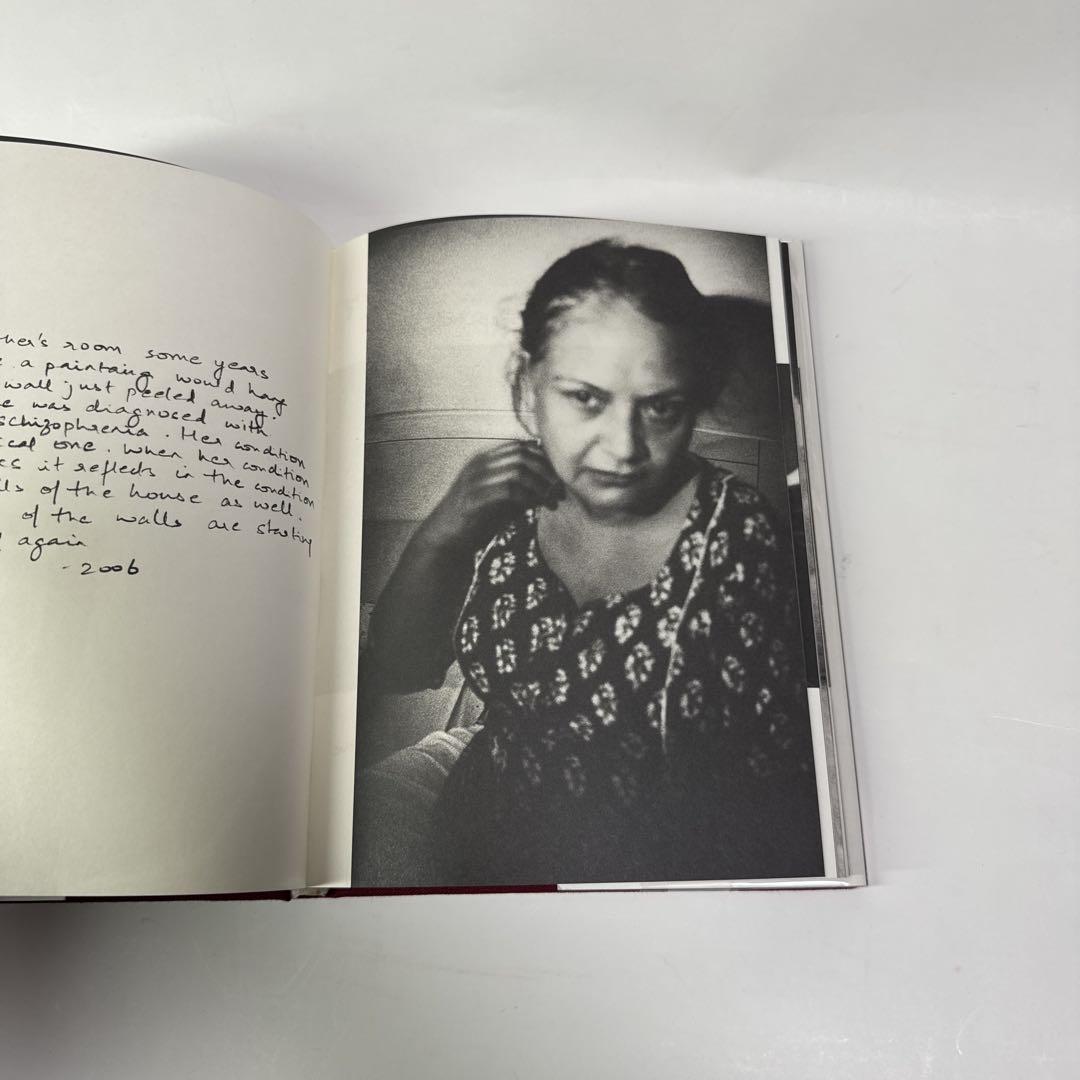 her's room some years
a painting would hang
wall just peeled away.
e was diagnosed with
schizophrenia. Her condition
ical one. When her condition
es it reflects in the condition
lls of the house as well.
of the walls are starting
again
- 2006